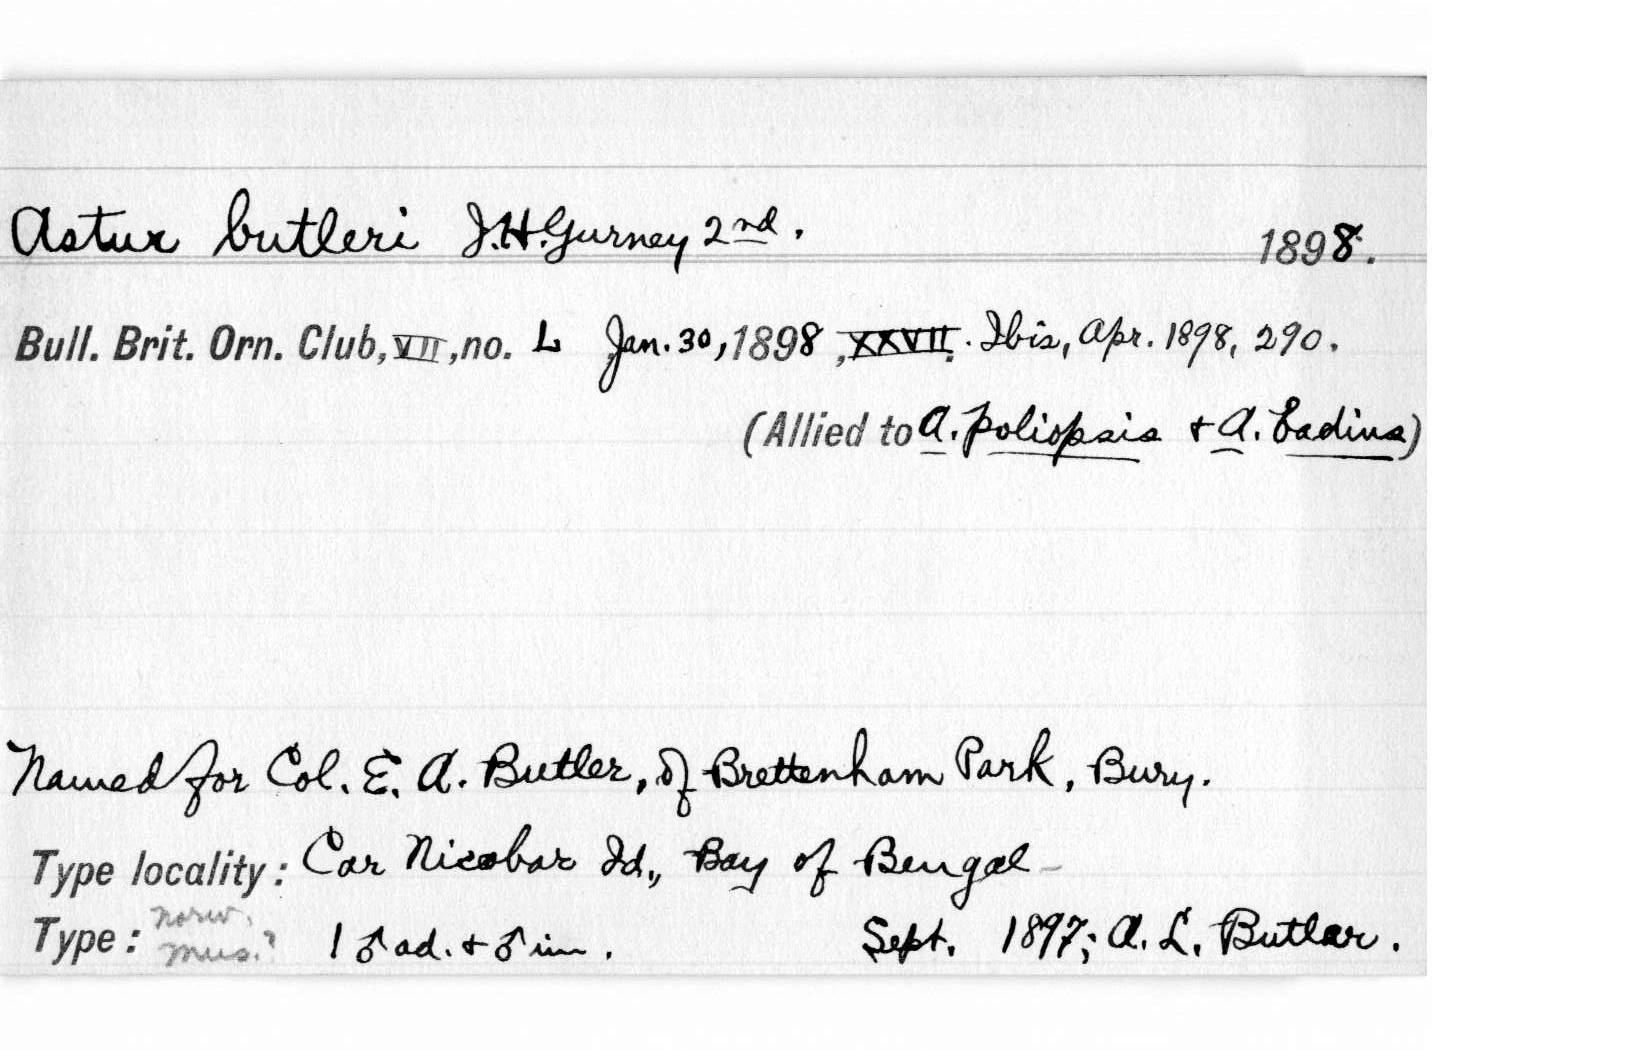 Astur butleri J.H. Gurney 2nd. 1898.
Bull. Brit. Orn. Club, VII, no. L Jan. 30, 1898, XXVII. Ibis, Apr. 1898, 290.
(Allied to A. poliopsis + A. badius)
Named for Col. E. A. Butler, of Brettenham Park, Bury.
Type locality: Car Nicobar Id., Bay of Bengal
Type: Norw. Mus.? 1 ♂ ad. + ♂ im. Sept. 1897; A. L. Butler.